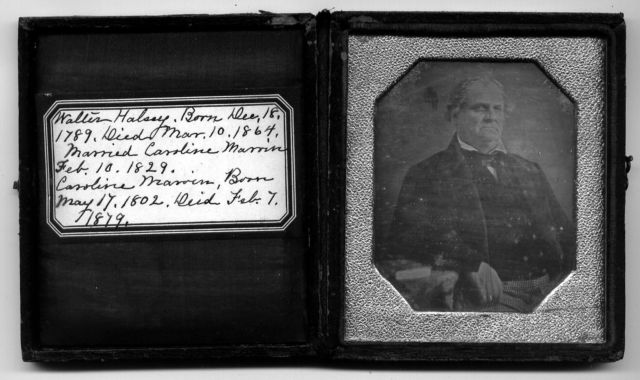 Walter Halsey. Born Dec, 18.
1789. Died Mar. 10. 1864.
Married Caroline Marvin
Feb. 10. 1829.
Caroline Marvin, Born
May 17. 1802. Deid Feb. 7.
1879.